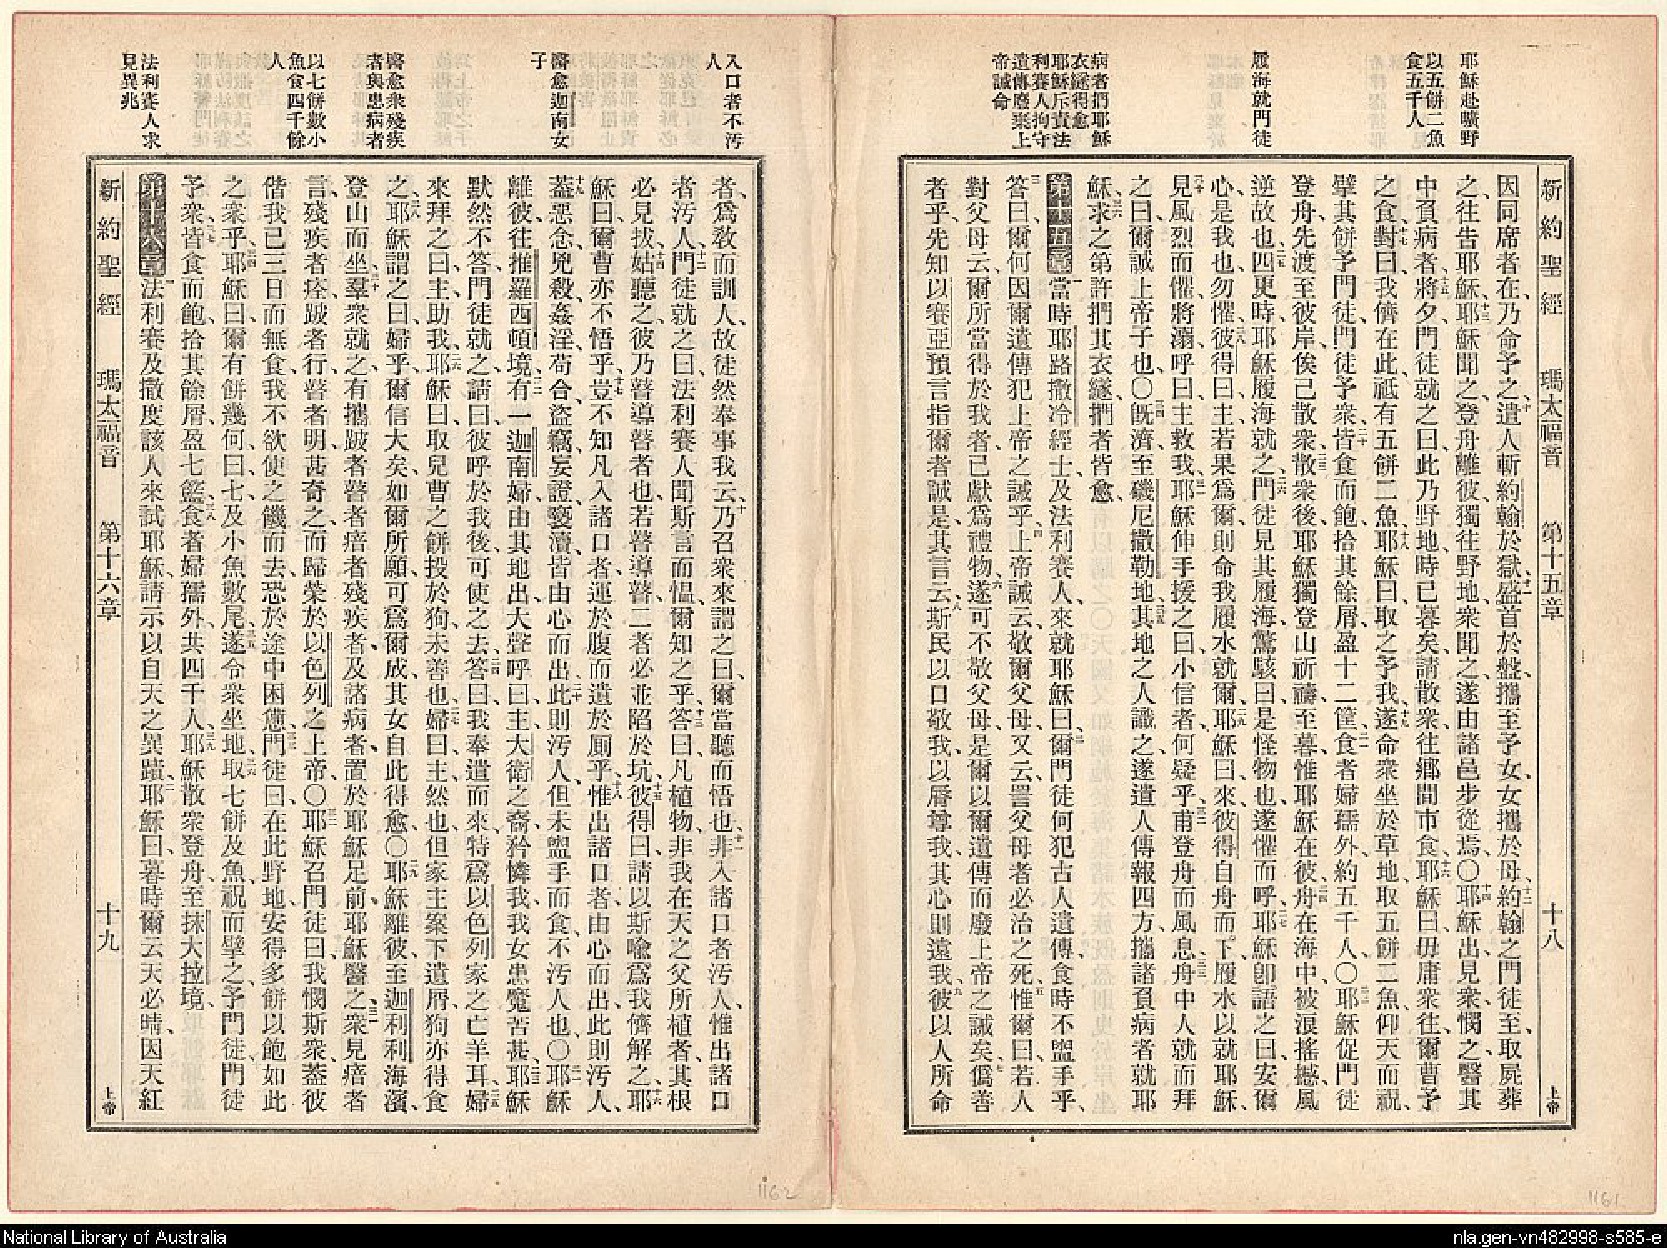 耶穌赴曠野
以五餅二魚
食五千人
履海就門徒
病者捫耶穌
衣縫得愈
耶穌斥責法
利賽人拘守
遺傳廢棄上
帝誡命
新約聖經 瑪太福音 第十五章 十八 上帝
因同席者在、乃命予之、遣人斬約翰於獄、盛首於盤、攜至予女、女攜於母、約翰之門徒至、取屍葬
之、往告耶穌、耶穌聞之、登舟離彼、獨往野地、衆聞之、遂由諸邑步從焉、〇耶穌出、見衆憫之、醫其
中負病者、將夕、門徒就之曰、此乃野地、時已暮矣、請散衆往鄉間市食、耶穌曰、毋庸衆往、爾曹予
之食、對曰、我儕在此、祗有五餅二魚、耶穌曰、取之予我、遂命衆坐於草地、取五餅二魚、仰天而祝、
擘其餅予門徒、門徒予衆、皆食而飽、拾其餘屑、盈十二筐、食者婦孺外、約五千人、〇耶穌促門徒
登舟、先渡至彼岸、俟己散衆、散衆後、耶穌獨登山祈禱、至暮、惟耶穌在彼、舟在海中、被浪搖撼、風
逆故也、四更時、耶穌履海就之、門徒見其履海、驚駭曰、是怪物也、遂懼而呼、耶穌卽語之曰、安爾
心、是我也、勿懼、彼得曰、主若果爲爾、則命我履水就爾、耶穌曰、來、彼得自舟而下、履水以就耶穌、
見風烈而懼、將溺、呼曰、主救我、耶穌伸手援之曰、小信者、何疑乎、甫登舟而風息、舟中人就而拜
之曰、爾誠上帝子也、〇旣濟、至磯尼撒勒地、其地之人識之、遂遣人傳報四方、攜諸負病者就耶
穌、求之第許捫其衣縫、捫者皆愈、
第十五章 當時耶路撒冷經士及法利賽人、來就耶穌曰、爾門徒何犯古人遺傳、食時不盥手乎、
答曰、爾何因爾遺傳、犯上帝之誡乎、上帝誡云、敬爾父母、又云、詈父母者必治之死、惟爾曰、若人
對父母云、爾所當得於我者、已獻爲禮物、遂可不敬父母、是爾以爾遺傳而廢上帝之誡矣、僞善
者乎、先知以賽亞預言指爾者誠是、其言云、斯民以口敬我、以脣尊我、其心則遠我、彼以人所命
入口者不污
人
醫愈迦南女
子
醫愈衆殘疾
者與患病者
以七餅數小
魚食四千餘
人
法利賽人求
見異兆
者、爲敎而訓人、故徒然奉事我云、乃召衆來、謂之曰、爾當聽而悟也、非入諸口者污人、惟出諸口
者污人、門徒就之曰、法利賽人聞斯言而慍、爾知之乎、答曰、凡植物非我在天之父所植者、其根
必見拔、姑聽之、彼乃瞽導瞽者也、若瞽導瞽、二者必並陷於坑、彼得曰、請以斯喩爲我儕解之、耶
穌曰、爾曹亦不悟乎、豈不知凡入諸口者、運於腹而遺於廁乎、惟出諸口者由心而出、此則污人、
蓋惡念、兇殺、姦淫、苟合、盜竊、妄證、褻瀆、皆由心而出、此則污人、但未盥手而食、不污人也、〇耶穌
離彼、往推羅西頓境、有一迦南婦、由其地出、大聲呼曰、主、大衛之裔、矜憐我、我女患魔苦甚、耶穌
默然不答、門徒就之、請曰、彼呼於我後、可使之去、答曰、我奉遣而來、特爲以色列家之亡羊耳、婦
來拜之曰、主助我、耶穌曰、取兒曹之餅投於狗、未善也、婦曰、主然也、但家主案下遺屑、狗亦得食
之、耶穌謂之曰、婦乎、爾信大矣、如爾所願、可爲爾成、其女自此得愈、〇耶穌離彼、至迦利利海濱、
登山而坐、羣衆就之、有攜跛者、瞽者、瘖者、殘疾者、及諸病者、置於耶穌足前、耶穌醫之、衆見瘖者
言、殘疾者痊、跛者行、瞽者明、甚奇之、而歸榮於以色列之上帝、〇耶穌召門徒曰、我憫斯衆、蓋彼
偕我已三日而無食、我不欲使之饑而去、恐於途中困憊、門徒曰、在此野地、安得多餅以飽如此
之衆乎、耶穌曰、爾有餅幾何、曰、七、及小魚數尾、遂令衆坐地、取七餅及魚、祝而擘之、予門徒、門徒
予衆、皆食而飽、拾其餘屑、盈七籃、食者婦孺外、共四千人、耶穌散衆登舟、至抹大拉境、
第十六章 法利賽及撒度該人來試耶穌、請示以自天之異蹟、耶穌曰、暮時爾云、天必晴、因天紅
新約聖經 瑪太福音 第十六章 十九 上帝
1162
1161
National Library of Australia
nla.gen-vn482998-s585-e